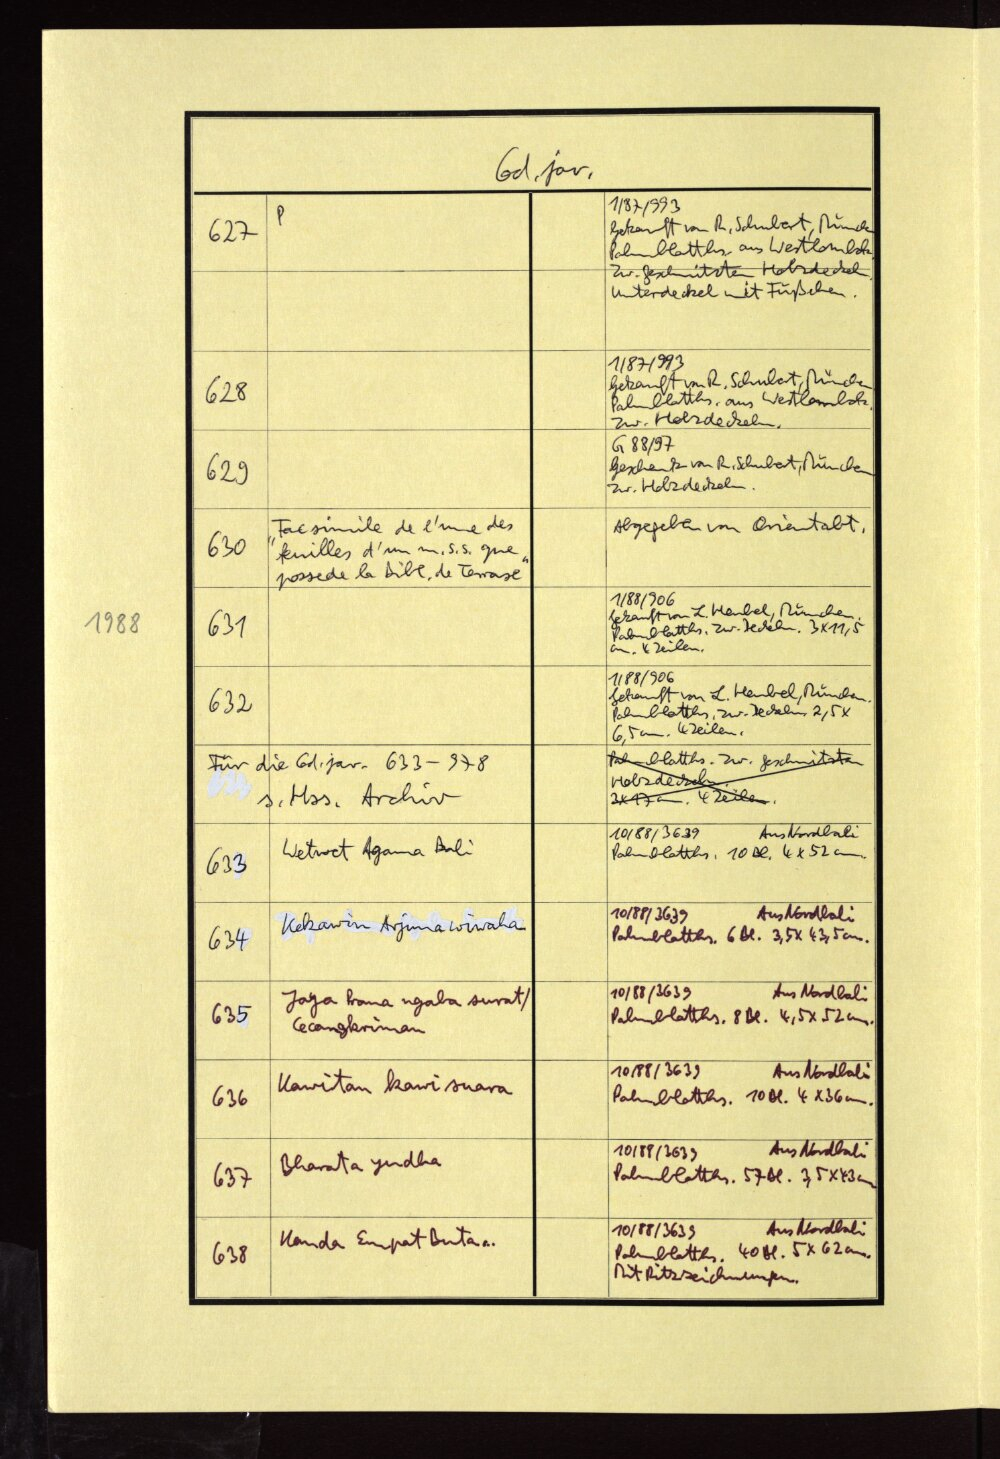 Cod. jav.
627
P
1/87/993
Gekauft von R. Schubert, München
Palmblatths. aus Westlombok.
Zw. geschnitzten Holzdeckeln.
Unterdeckel mit Füßchen.
628
1/87/993
Gekauft von R. Schubert, München
Palmblatths. aus Westlombok.
Zw. Holzdeckeln.
629
G 88/97
Geschenk von R. Schubert, München
Zw. Holzdeckeln.
630
"Facsimile de l'une des
feuilles d'un m.s.s. que
possede la Bibl. de Terrase"
Abgegeben von Orientabt.
1988
631
1/88/906
Gekauft von L. Heubel, München.
Palmblatths. Zw. Deckeln. 3 x 11,5
cm. 4 Zeilen.
632
1/88/906
Gekauft von L. Heubel, München.
Palmblatths. Zw. Deckeln 2,5 x
6,5 cm. 4 Zeilen.
Für die Cod. jav. 633 - 978
s. Hss. Archiv
Palmblatths. Zw. geschnitzten
Holzdeckeln
3 x 17 cm. 4 Zeilen.
633
Wetwet Agama Bali
10/88/3639 Aus Nordbali
Palmblatths. 10 Bl. 4 x 52 cm.
634
Kekawin Arjuna wiwaha
10/88/3639 Aus Nordbali
Palmblatths. 6 Bl. 3,5 x 43,5 cm.
635
Jaya Prana ngaba surat/
Cecangkriman
10/88/3639 Aus Nordbali
Palmblatths. 8 Bl. 4,5 x 52 cm.
636
Kawitan kawi suara
10/88/3639 Aus Nordbali
Palmblatths. 10 Bl. 4 x 36 cm.
637
Bharata yudha
10/88/3639 Aus Nordbali
Palmblatths. 57 Bl. 3,5 x 43 cm
638
Kanda Empat Buta..
10/88/3639 Aus Nordbali
Palmblatths. 40 Bl. 5 x 62 cm.
Mit Ritzzeichnungen.